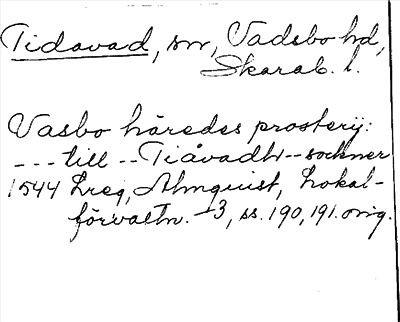 Tidavad, sn, Vadsbo hd,
Skarab. l.
Vasbo häredes prosterij:
--- till -- Tiåvadh -- sockner
1544 Lreg, Almquist, Lokal-
förvaltn. +3, ss. 190, 191. orig.